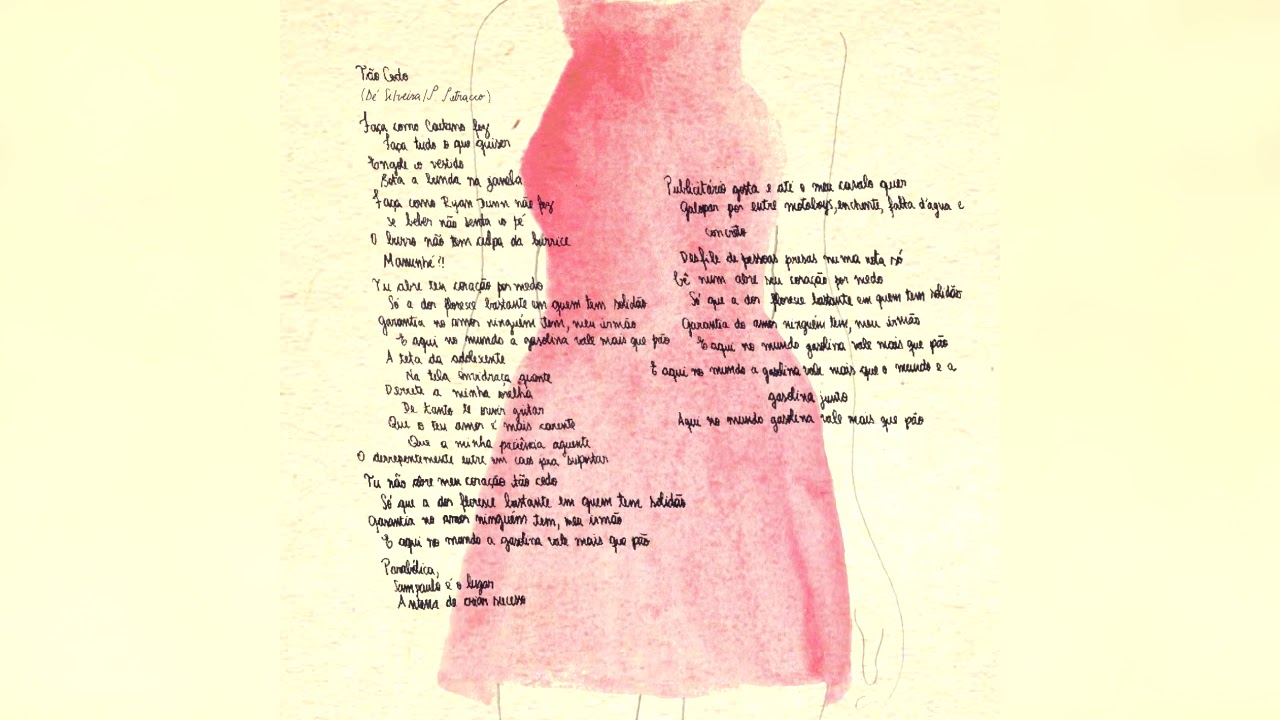 Tão Cedo
(Dé Silveira/P. Petracco)
Faça como Caetano fez
Faça tudo o que quiser
Engole o vestido
Bota a bunda na janela
Faça como Ryan Dunn não fez
Se beber não senta o pé
O burro não tem culpa da burrice
Mamunhé!!
Tu abre teu coração por medo
Só a dor floresce bastante em quem tem solidão
Garantia no amor ninguém tem, meu irmão
E aqui no mundo a gasolina vale mais que pão
A teta da adolescente
Na tela envidraça quente
Derrete a minha orelha
De tanto te ouvir gritar
Que o teu amor é mais carente
Que a minha paciência aguente
O derrepentemente entre um caos pra suportar
Tu não abre meu coração tão cedo
Só que a dor floresce bastante em quem tem solidão
Garantia no amor ninguém tem, meu irmão
E aqui no mundo a gasolina vale mais que pão
Parabólica,
Sampaulo é o lugar
Antena de criar sucesso
Publicitário gosta e até o meu cavalo quer
Galopar por entre motoboys, enchente, falta d'água e
concreto
Desfile de pessoas presas numa reta só
Cê num abre seu coração por medo
Só que a dor floresce bastante em quem tem solidão
Garantia do amor ninguém tem, meu irmão
E aqui no mundo gasolina vale mais que pão
E aqui no mundo a gasolina vale mais que o mundo e a
gasolina junto
Aqui no mundo gasolina vale mais que pão